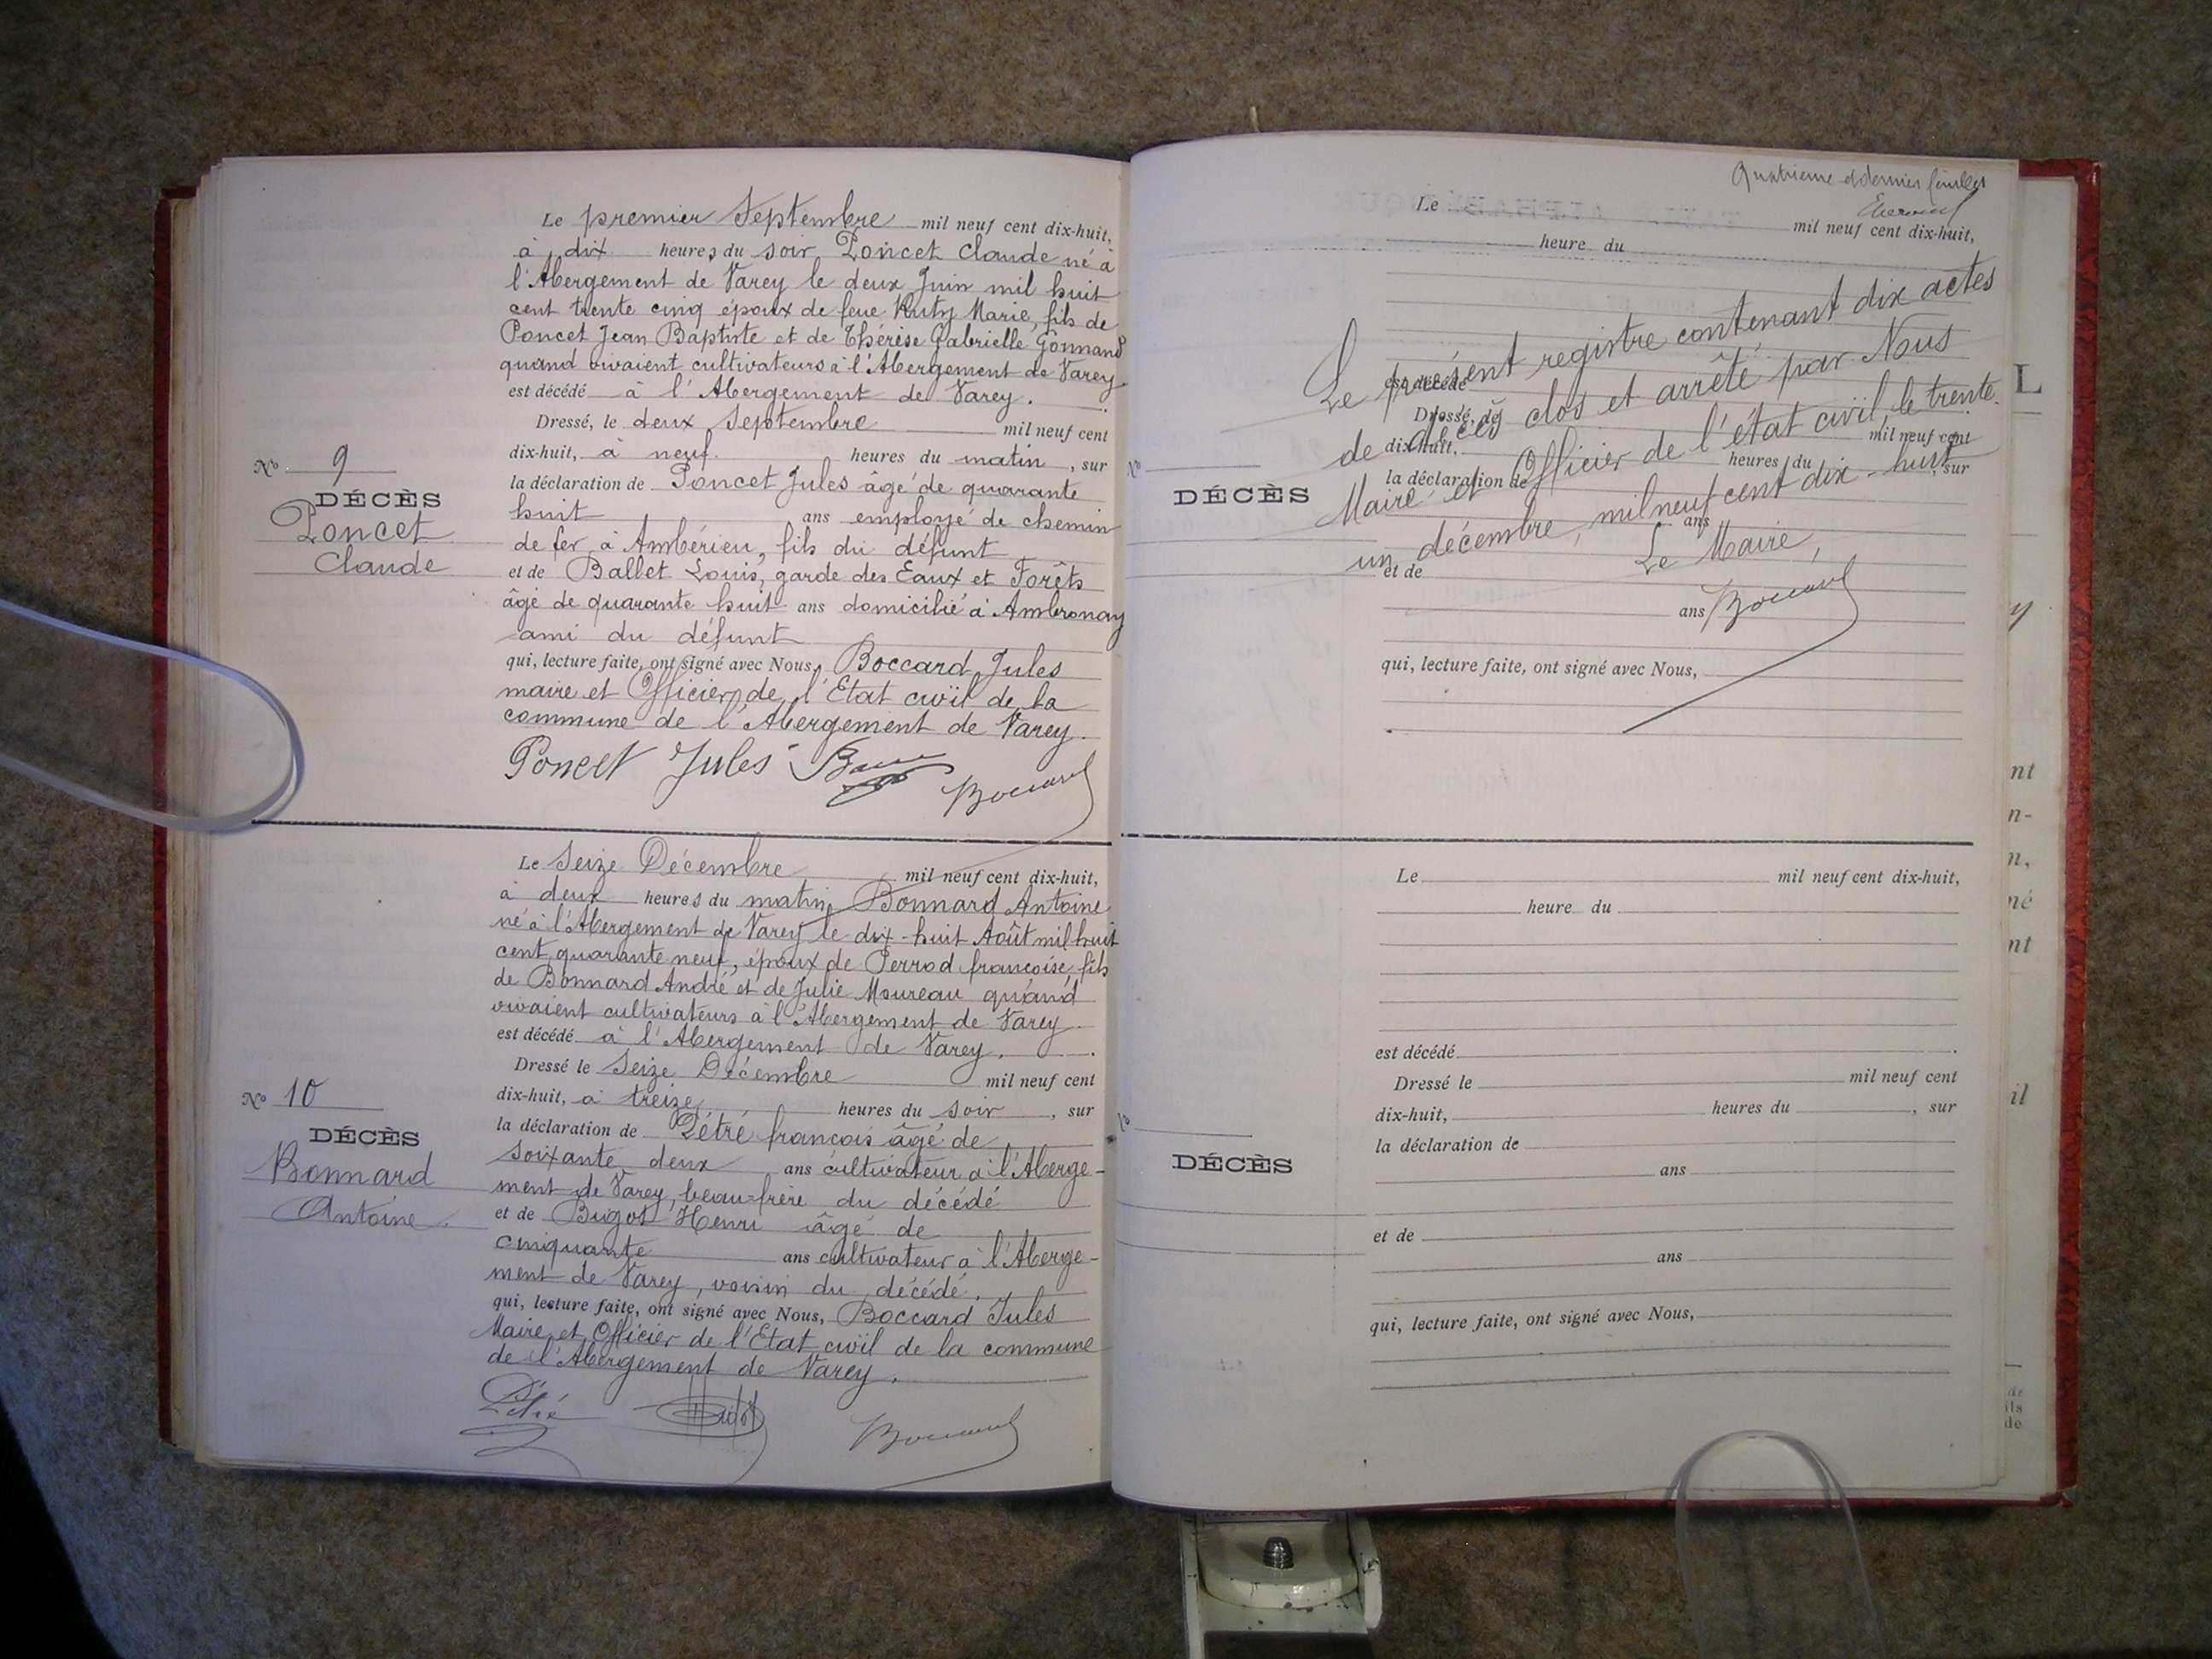 Le premier Septembre mil neuf cent dix-huit,
à dix heures du soir Poncet Claude né à
l'Abergement de Varey le deux Juin mil huit
cent trente cinq époux de feue Ruty Marie, fils de
Poncet Jean Baptiste et de Thérèse Gabrielle Gonnand
quand vivaient cultivateurs à l'Abergement de Varey
est décédé à l'Abergement de Varey.
Dressé, le deux Septembre mil neuf cent
dix-huit, à neuf heures du matin, sur
la déclaration de Poncet Jules âgé de quarante
huit ans employé de chemin
de fer à Ambérieu, fils du défunt
et de Ballet Louis, garde des Eaux et Forêts
âgé de quarante huit ans domicilié à Ambronay
ami du défunt
qui, lecture faite, ont signé avec Nous, Boccard Jules
maire et Officier de l'Etat civil de la
commune de l'Abergement de Varey.
Poncet Jules Boccard
No 9
DÉCÈS
Poncet
Claude
Le Seize Décembre mil neuf cent dix-huit,
à deux heures du matin, Bonnard Antoine
né à l'Abergement de Varey le dix-huit Août mil huit
cent quarante neuf, époux de Perrod françoise, fils
de Bonnard André et de Julie Moureau quand
vivaient cultivateurs à l'Abergement de Varey.
est décédé à l'Abergement de Varey.
Dressé le Seize Décembre mil neuf cent
dix-huit, à treize heures du soir, sur
la déclaration de Pétré françois âgé de
soixante deux ans cultivateur à l'Aberge-
ment de Varey, beau=frère du décédé
et de Bugot Henri âgé de
cinquante ans cultivateur à l'Aberge-
ment de Varey, voisin du décédé.
qui, lecture faite, ont signé avec Nous, Boccard Jules
Maire et Officier de l'Etat civil de la commune
de l'Abergement de Varey.
Pétré Boccard
No 10
DÉCÈS
Bonnard
Antoine.
Quatrième et dernier feuillet
Le mil neuf cent dix-huit,
heure du
Le présent registre contenant dix actes
de décès clos et arrêté par Nous
Maire et Officier de l'état civil, le trente
un décembre, mil neuf cent dix-huit
Le Maire,
Boccard
est décédé
Dressé, le mil neuf cent
dix-huit, heures du , sur
la déclaration de
ans
et de
ans
qui, lecture faite, ont signé avec Nous,
No
DÉCÈS
Le mil neuf cent dix-huit,
heure du
est décédé .
Dressé le mil neuf cent
dix-huit, heures du , sur
la déclaration de
ans
et de
ans
qui, lecture faite, ont signé avec Nous,
DÉCÈS
L
y
nt
n-
n,
né
nt
il
de
ils
de